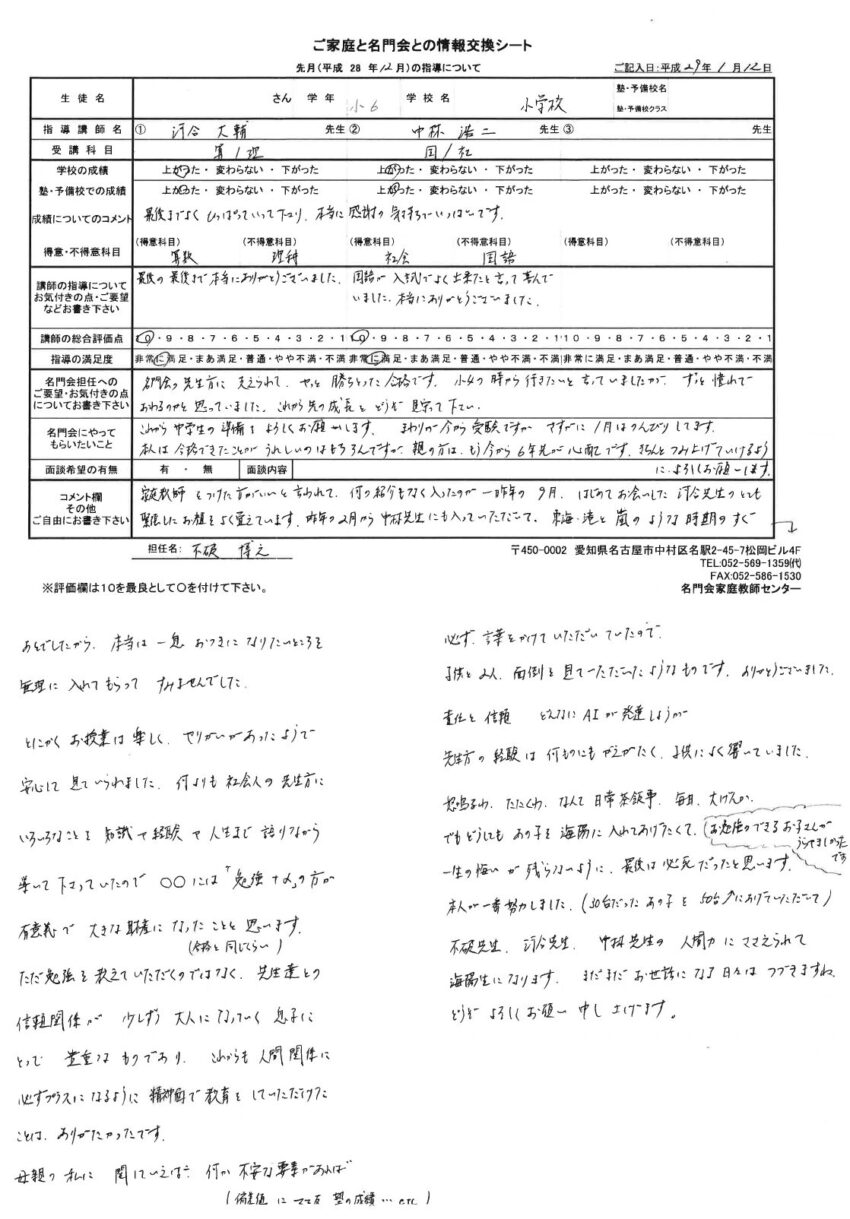 ご家庭と名門会との情報交換シート
先月(平成 28 年 12 月)の指導について
ご記入日:平成 29年 1 月 12日
生徒名 さん 学年 小6 学校名 小学校 塾・予備校名
塾・予備校クラス
指導講師名 ① 河合 大輔 先生 ② 中林 浩二 先生 ③ 先生
受講科目 算/理 国/社
学校の成績 上がった・変わらない・下がった 上がった・変わらない・下がった 上がった・変わらない・下がった
塾・予備校での成績 上がった・変わらない・下がった 上がった・変わらない・下がった 上がった・変わらない・下がった
成績についてのコメント 最後までよくひっぱっていって下さり、本当に感謝の気持ちでいっぱいです。
得意・不得意科目 (得意科目) (不得意科目) (得意科目) (不得意科目) (得意科目) (不得意科目)
算数 理科 社会 国語
講師の指導について
お気付きの点・ご要望
などお書き下さい
最後の最後まで本当にありがとうございました。
国語が入試でよく出来たと言って喜んで
いました。本当にありがとうございました。
講師の総合評価点 10・9・8・7・6・5・4・3・2・1 10・9・8・7・6・5・4・3・2・1 10・9・8・7・6・5・4・3・2・1
指導の満足度 非常に満足・まあ満足・普通・やや不満・不満 非常に満足・まあ満足・普通・やや不満・不満 非常に満足・まあ満足・普通・やや不満・不満
名門会担任への
ご要望・お気付きの点
についてお書き下さい
名門会の先生方に支えられて、やっと勝ちとった合格です。小4の時から行きたいと言っていましたが、ずっと憧れで
おわるのかと思っていました。これから先の成長もどうぞ見守って下さい。
名門会にやって
もらいたいこと
これから中学生の準備もよろしくお願いします。まわりが今から受験ですが、さすがに1月はのんびりしてます。
本人は合格できたことがうれしいのはもちろんですが、親の方は、もう今から6年先が心配です。きちんとつみ上げていけるよう
に、よろしくお願いします。
面談希望の有無 有・無 面談内容
コメント欄
その他
ご自由にお書き下さい
家庭教師をつけた方がいいと言われて、何の紹介もなく入ったのが一昨年の9月、はじめてお会いした河合先生のとても
緊張したお顔をよく覚えています。昨年の2月から中林先生にも入っていただいて、東海・滝と嵐のような時期のすぐ
担任名: 不破 博之
〒450-0002 愛知県名古屋市中村区名駅2-45-7松岡ビル4F
TEL:052-569-1359(代)
FAX:052-586-1530
名門会家庭教師センター
※評価欄は10を最良として○を付けて下さい。
あとでしたから、本当は一息おつきになりたいところを
無理に入れてもらってすみませんでした。
とにかくお授業は楽しく、やりがいがあったようで
安心して見ていられました。何よりも社会人の先生方に
いろいろなことを知識や経験や人生まで語りながら
導いて下さっていたので ○○には「勉強+α」の方が
有意義で大きな財産になったことと思います。
(合格と同じくらい)
ただ勉強を教えていただくのではなく、先生達との
信頼関係が少しずつ大人になっていく息子に
とって貴重なものであり、これからも人間関係に
必ずプラスになるように精神面で教育をしていただけた
ことは、ありがたかったです。
母親の私に関していえば、何か不安な要素があれば
(偏差値 塾の成績…etc)
必ず、言葉をかけていただいていたので、
子供と2人、面倒を見ていただいたようなものです。ありがとうございました。
責任と信頼 どんなにAIが発達しようが
先生方の経験は何ものにもかえがたく、子供によく響いていました。
怒鳴るわ、たたくわ、なんて日常茶飯事、毎日、大げんか、
でもどうしてもあの子を海陽に入れてあげたくて、(お勉強のできるお子さんが
うらやましかったです
一生の悔いが残らないように、最後は必死だったと思います。
本人が一番努力しました。(30台だったあの子を50台↗にあげていただいて)
不破先生、河合先生、中林先生の人間力にささえられて
海陽生になります。まだまだお世話になる日々はつづきますね。
どうぞよろしくお願い申し上げます。